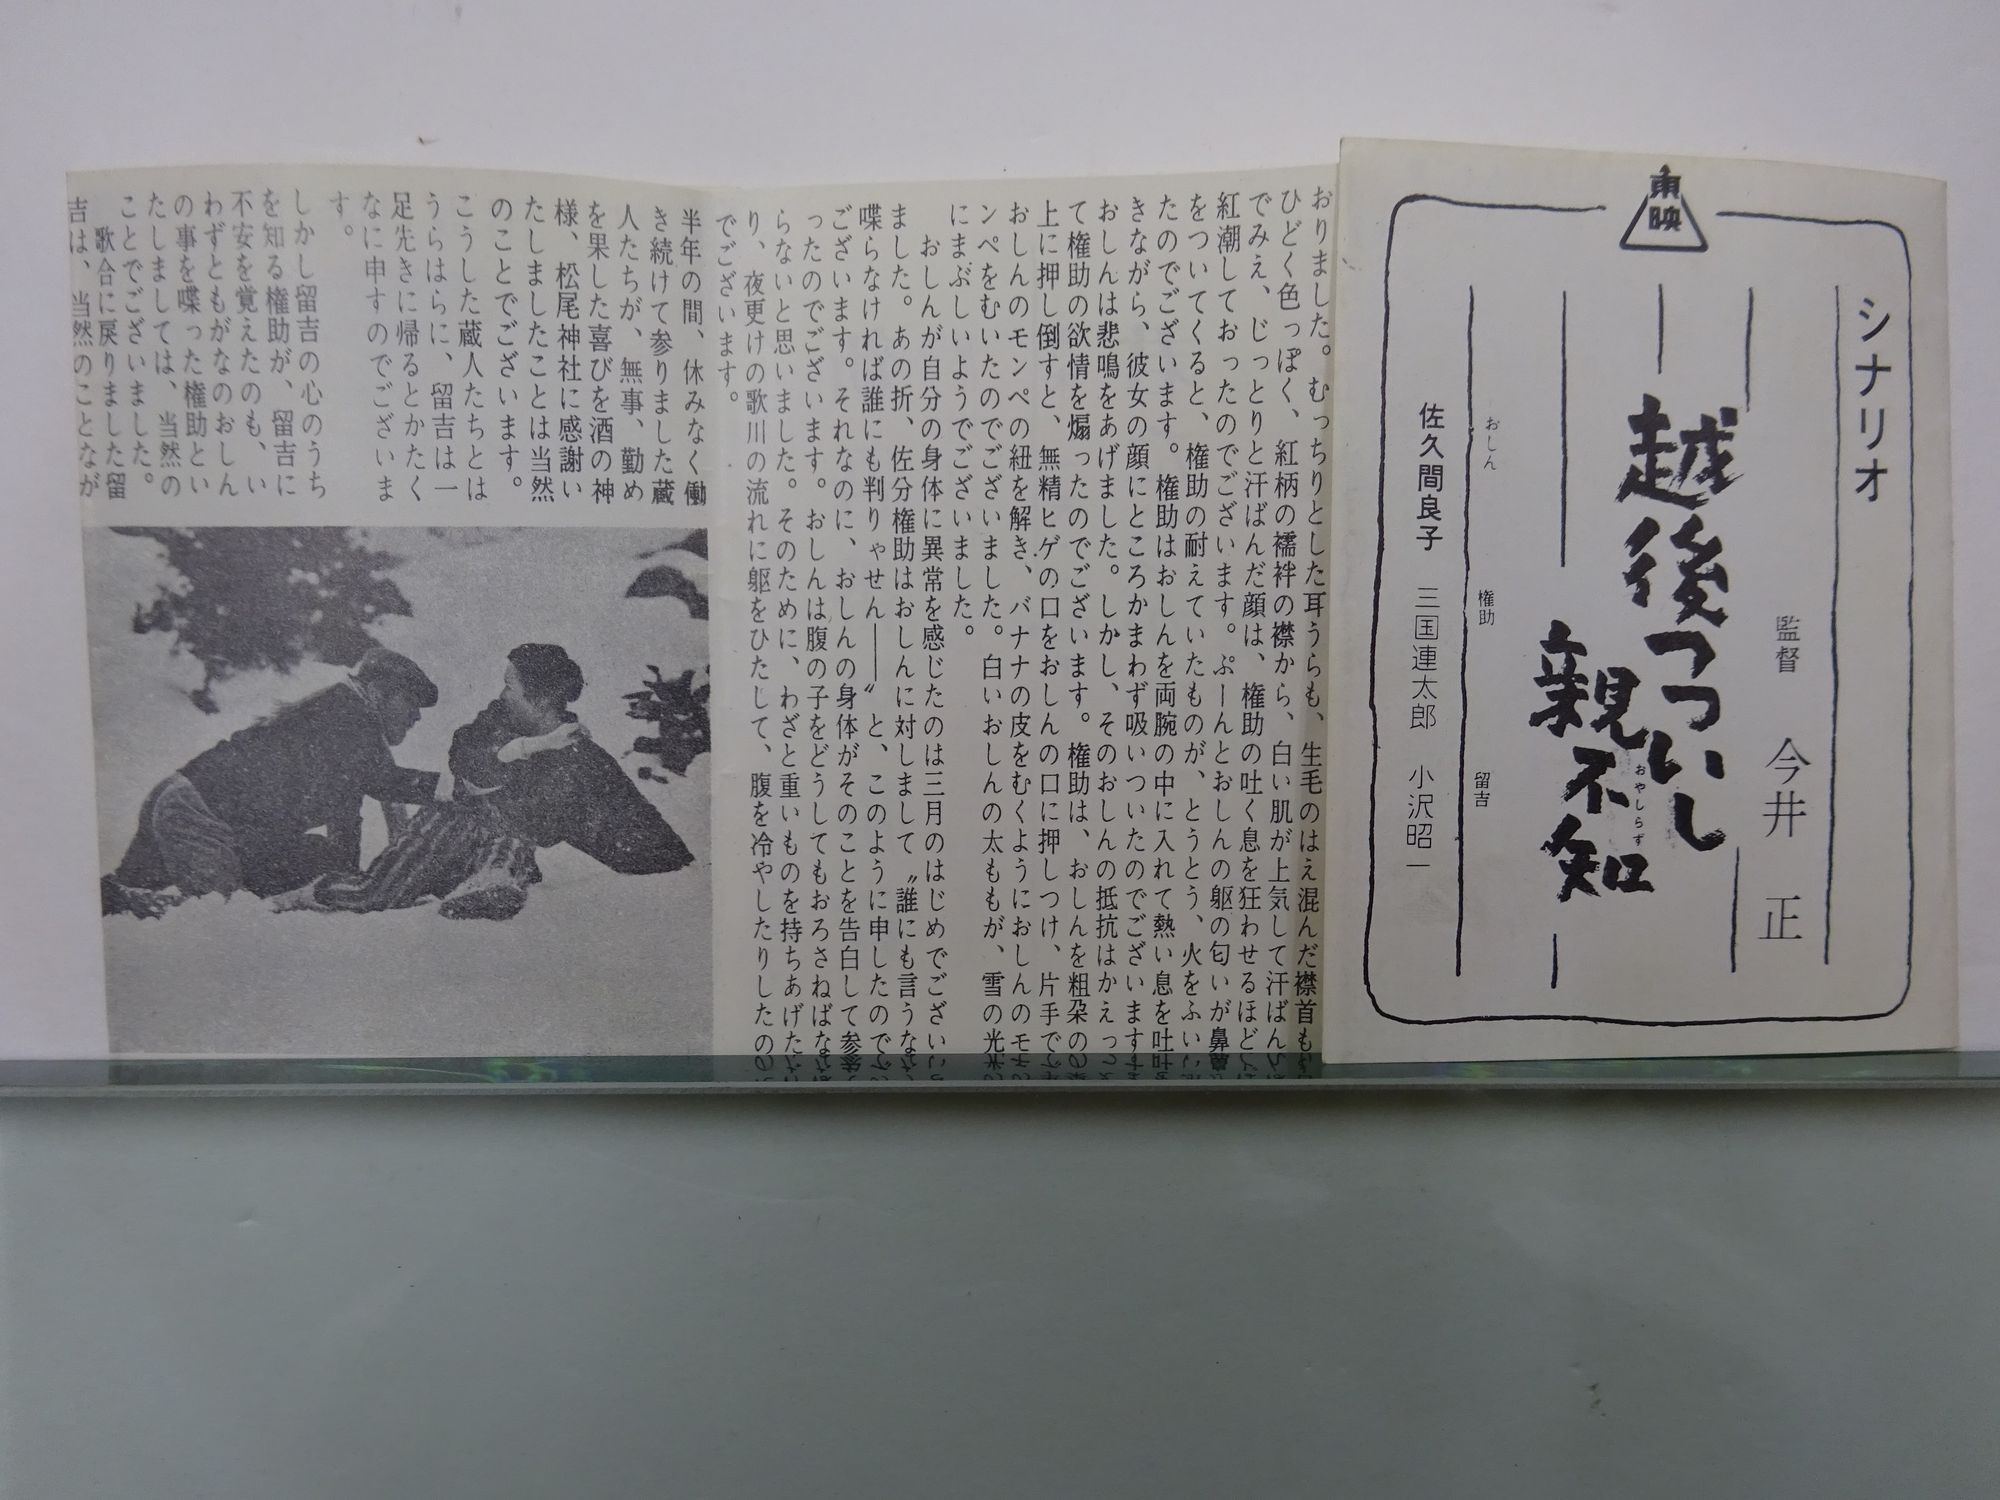 東映
シナリオ
監督 今井 正
越後つついし
親不知
おやしらず
おしん 佐久間良子
権助 三国連太郎
留吉 小沢昭一
おりました。むっちりとした耳うらも、生毛のはえ混んだ襟首も
ひどく色っぽく、紅柄の襦袢の襟から、白い肌が上気して汗ばん
でみえ、じっとりと汗ばんだ顔は、権助の吐く息を狂わせるほど
紅潮しておったのでございます。ぷーんとおしんの躯の匂いが鼻
をついてくると、権助の耐えていたものが、とうとう、火をふい
たのでございます。権助はおしんを両腕の中に入れて熱い息を吐
きながら、彼女の顔にところかまわず吸いついたのでございます
おしんは悲鳴をあげました。しかし、そのおしんの抵抗はかえっ
て権助の欲情を煽ったのでございます。権助は、おしんを粗朶の
上に押し倒すと、無精ヒゲの口をおしんの口に押しつけ、片手で
おしんのモンペの紐を解き、バナナの皮をむくようにおしんのモ
ンペをむいたのでございました。白いおしんの太ももが、雪の光
にまぶしいようでございました。
おしんが自分の身体に異常を感じたのは三月のはじめでござい
ました。あの折、佐分権助はおしんに対しまして〝誰にも言うな
喋らなければ誰にも判りゃせん——〟と、このように申したので
ございます。それなのに、おしんの身体がそのことを告白して参
ったのでございます。おしんは腹の子をどうしてもおろさねばな
らないと思いました。そのために、わざと重いものを持ちあげた
り、夜更けの歌川の流れに躯をひたして、腹を冷やしたりしたの
でございます。
半年の間、休みなく働
き続けて参りました蔵
人たちが、無事、勤め
を果した喜びを酒の神
様、松尾神社に感謝い
たしましたことは当然
のことでございます。
こうした蔵人たちとは
うらはらに、留吉は一
足先きに帰るとかたく
なに申すのでございま
す。
しかし留吉の心のうち
を知る権助が、留吉に
不安を覚えたのも、い
わずともがなのおしん
の事を喋った権助とい
たしましては、当然の
ことでございました。
歌合に戻りました留
吉は、当然のことなが